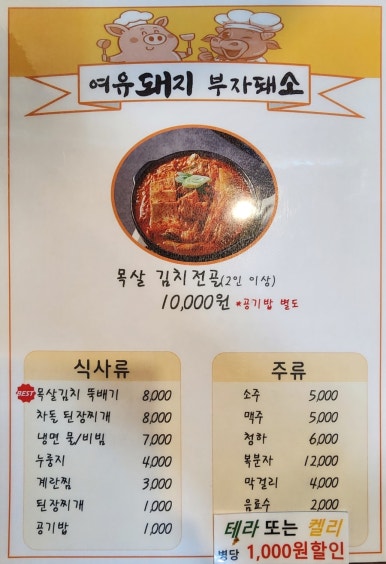 여유돼지 부자돼소
목살 김치전골(2인 이상)
10,000원 *공기밥 별도
식사류
BEST 목살김치 뚝배기 8,000
차돌 된장찌개 8,000
냉면 물/비빔 7,000
누룽지 4,000
계란찜 3,000
된장찌개 1,000
공기밥 1,000
주류
소주 5,000
맥주 5,000
청하 6,000
복분자 12,000
막걸리 4,000
음료수 2,000
테라 또는 켈리
병당 1,000원할인